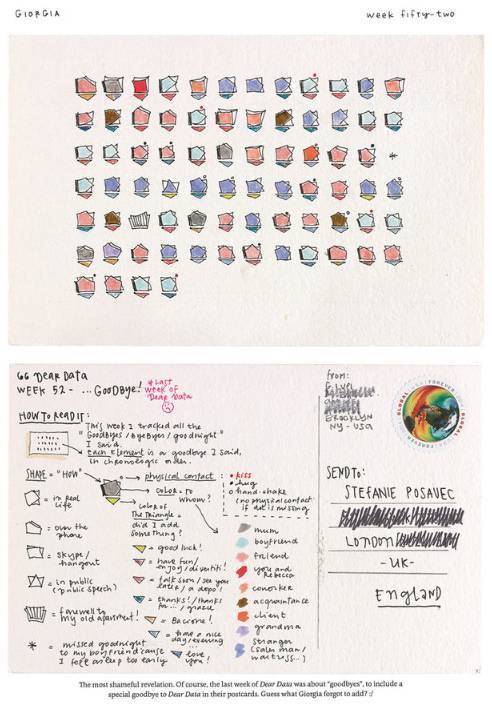 GIORGIA
week fifty-two
*
GG DEAR DATA
WEEK 52 - ... GOODBYE!
* LAST
week of
Dear Data
HOW TO READ IT:
This week I tracked all the
"Goodbyes / Byebyes / goodnight"
I said.
each element is a goodbye I said,
in chronologic order.
SHAPE = "HOW"
in real
life
over the
phone
skype /
hangout
in public
(public speech)
farewell to
my old apartment!
* missed goodnight
to my boyfriend 'cause
I fell asleep too early
physical contact:
• kiss
• hug
o hand-shake
(no physical contact
if dot is missing
color = to
whom?
color of
the triangle =
did I add
something?
= good luck!
= have fun/
enjoy / divertiti!
= talk soon / see you
later / a dopo!
= thanks! / thanks
for... / grazie
= Bacione!
= have a nice
day / evening
= love
you!
mum
boyfriend
friend
you and
Rebecca
coworker
acquaintance
client
grandma
stranger
(sales man /
waitress...)
FROM:
BROOKLYN
NY - USA
GLOBAL
FOREVER
SEND TO:
STEFANIE POSAVEC
LONDON
- UK -
ENGLAND
The most shameful revelation. Of course, the last week of Dear Data was about "goodbyes", to include a
special goodbye to Dear Data in their postcards. Guess what Giorgia forgot to add? :/